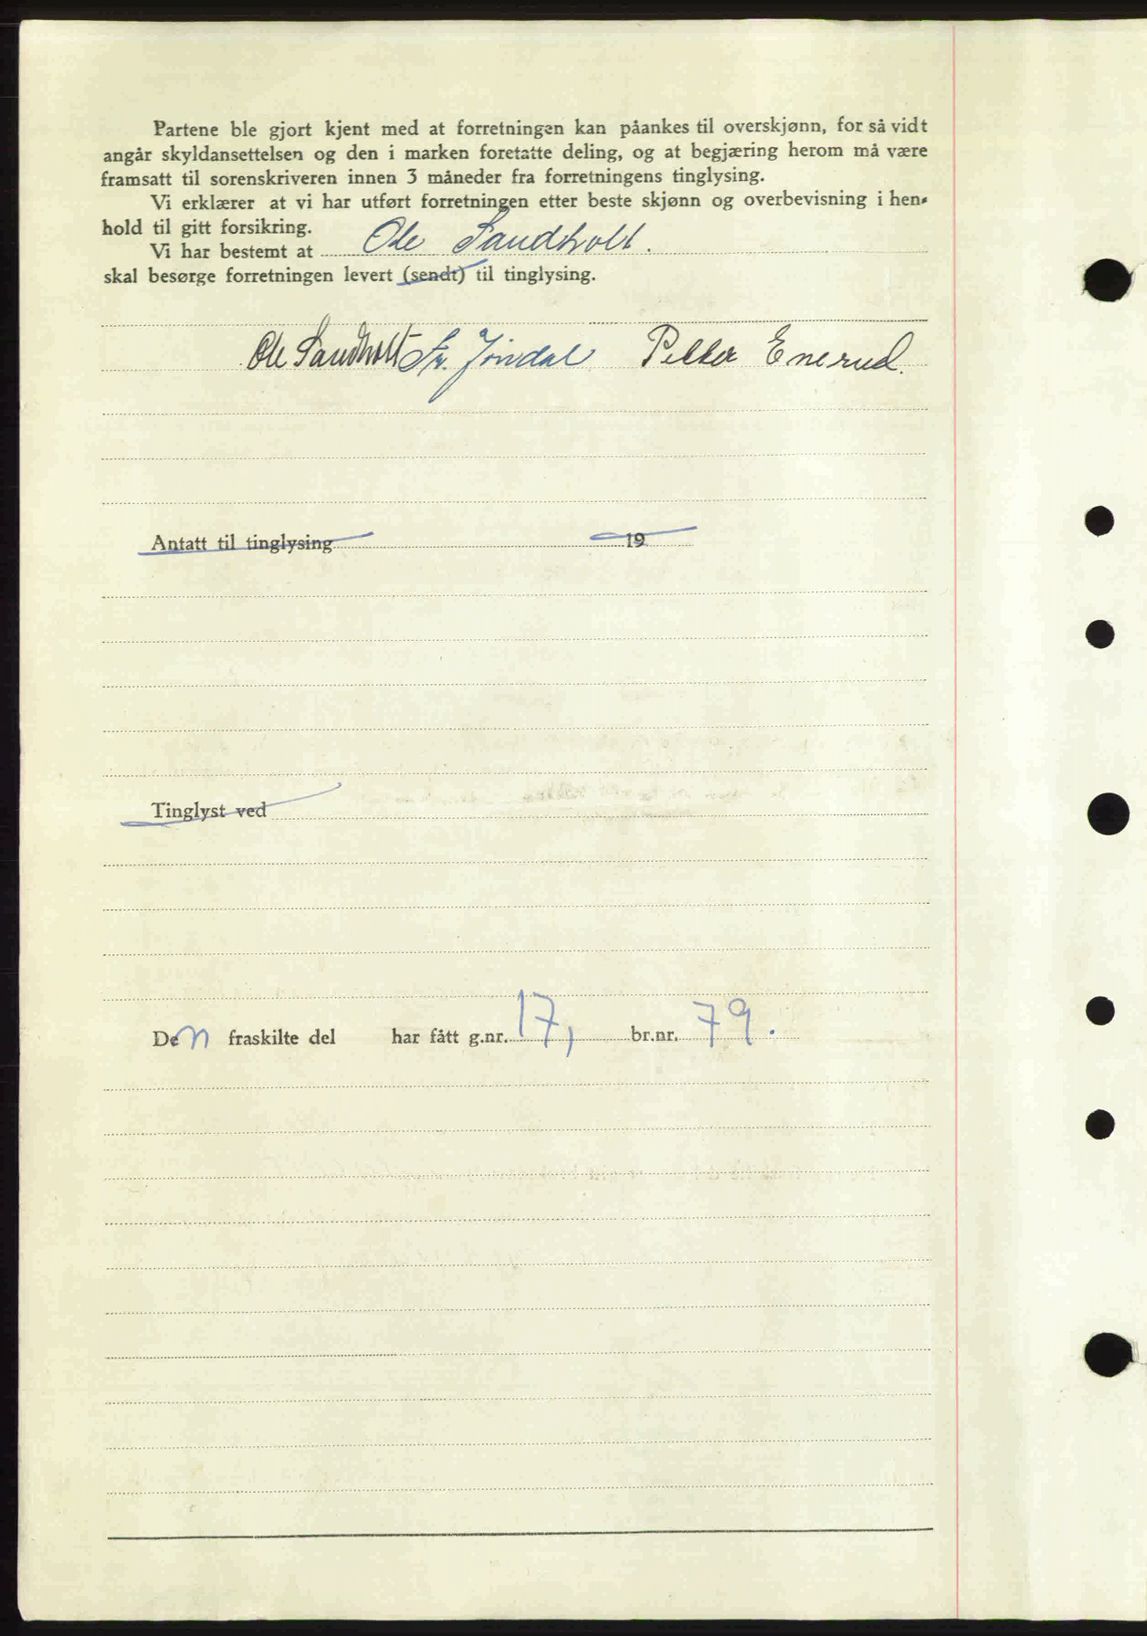 Partene ble gjort kjent med at forretningen kan påankes til overskjønn, for så vidt
angår skyldansettelsen og den i marken foretatte deling, og at begjæring herom må være
framsatt til sorenskriveren innen 3 måneder fra forretningens tinglysing.
Vi erklærer at vi har utført forretningen etter beste skjønn og overbevisning i hen-
hold til gitt forsikring.
Vi har bestemt at Ole Sandholt.
skal besørge forretningen levert (sendt) til tinglysing.
Ole Sandholt Fr. Jøndal Petter Enerud.
Antatt til tinglysing 19
Tinglyst ved
Den fraskilte del har fått g.nr. 17, br.nr. 79.